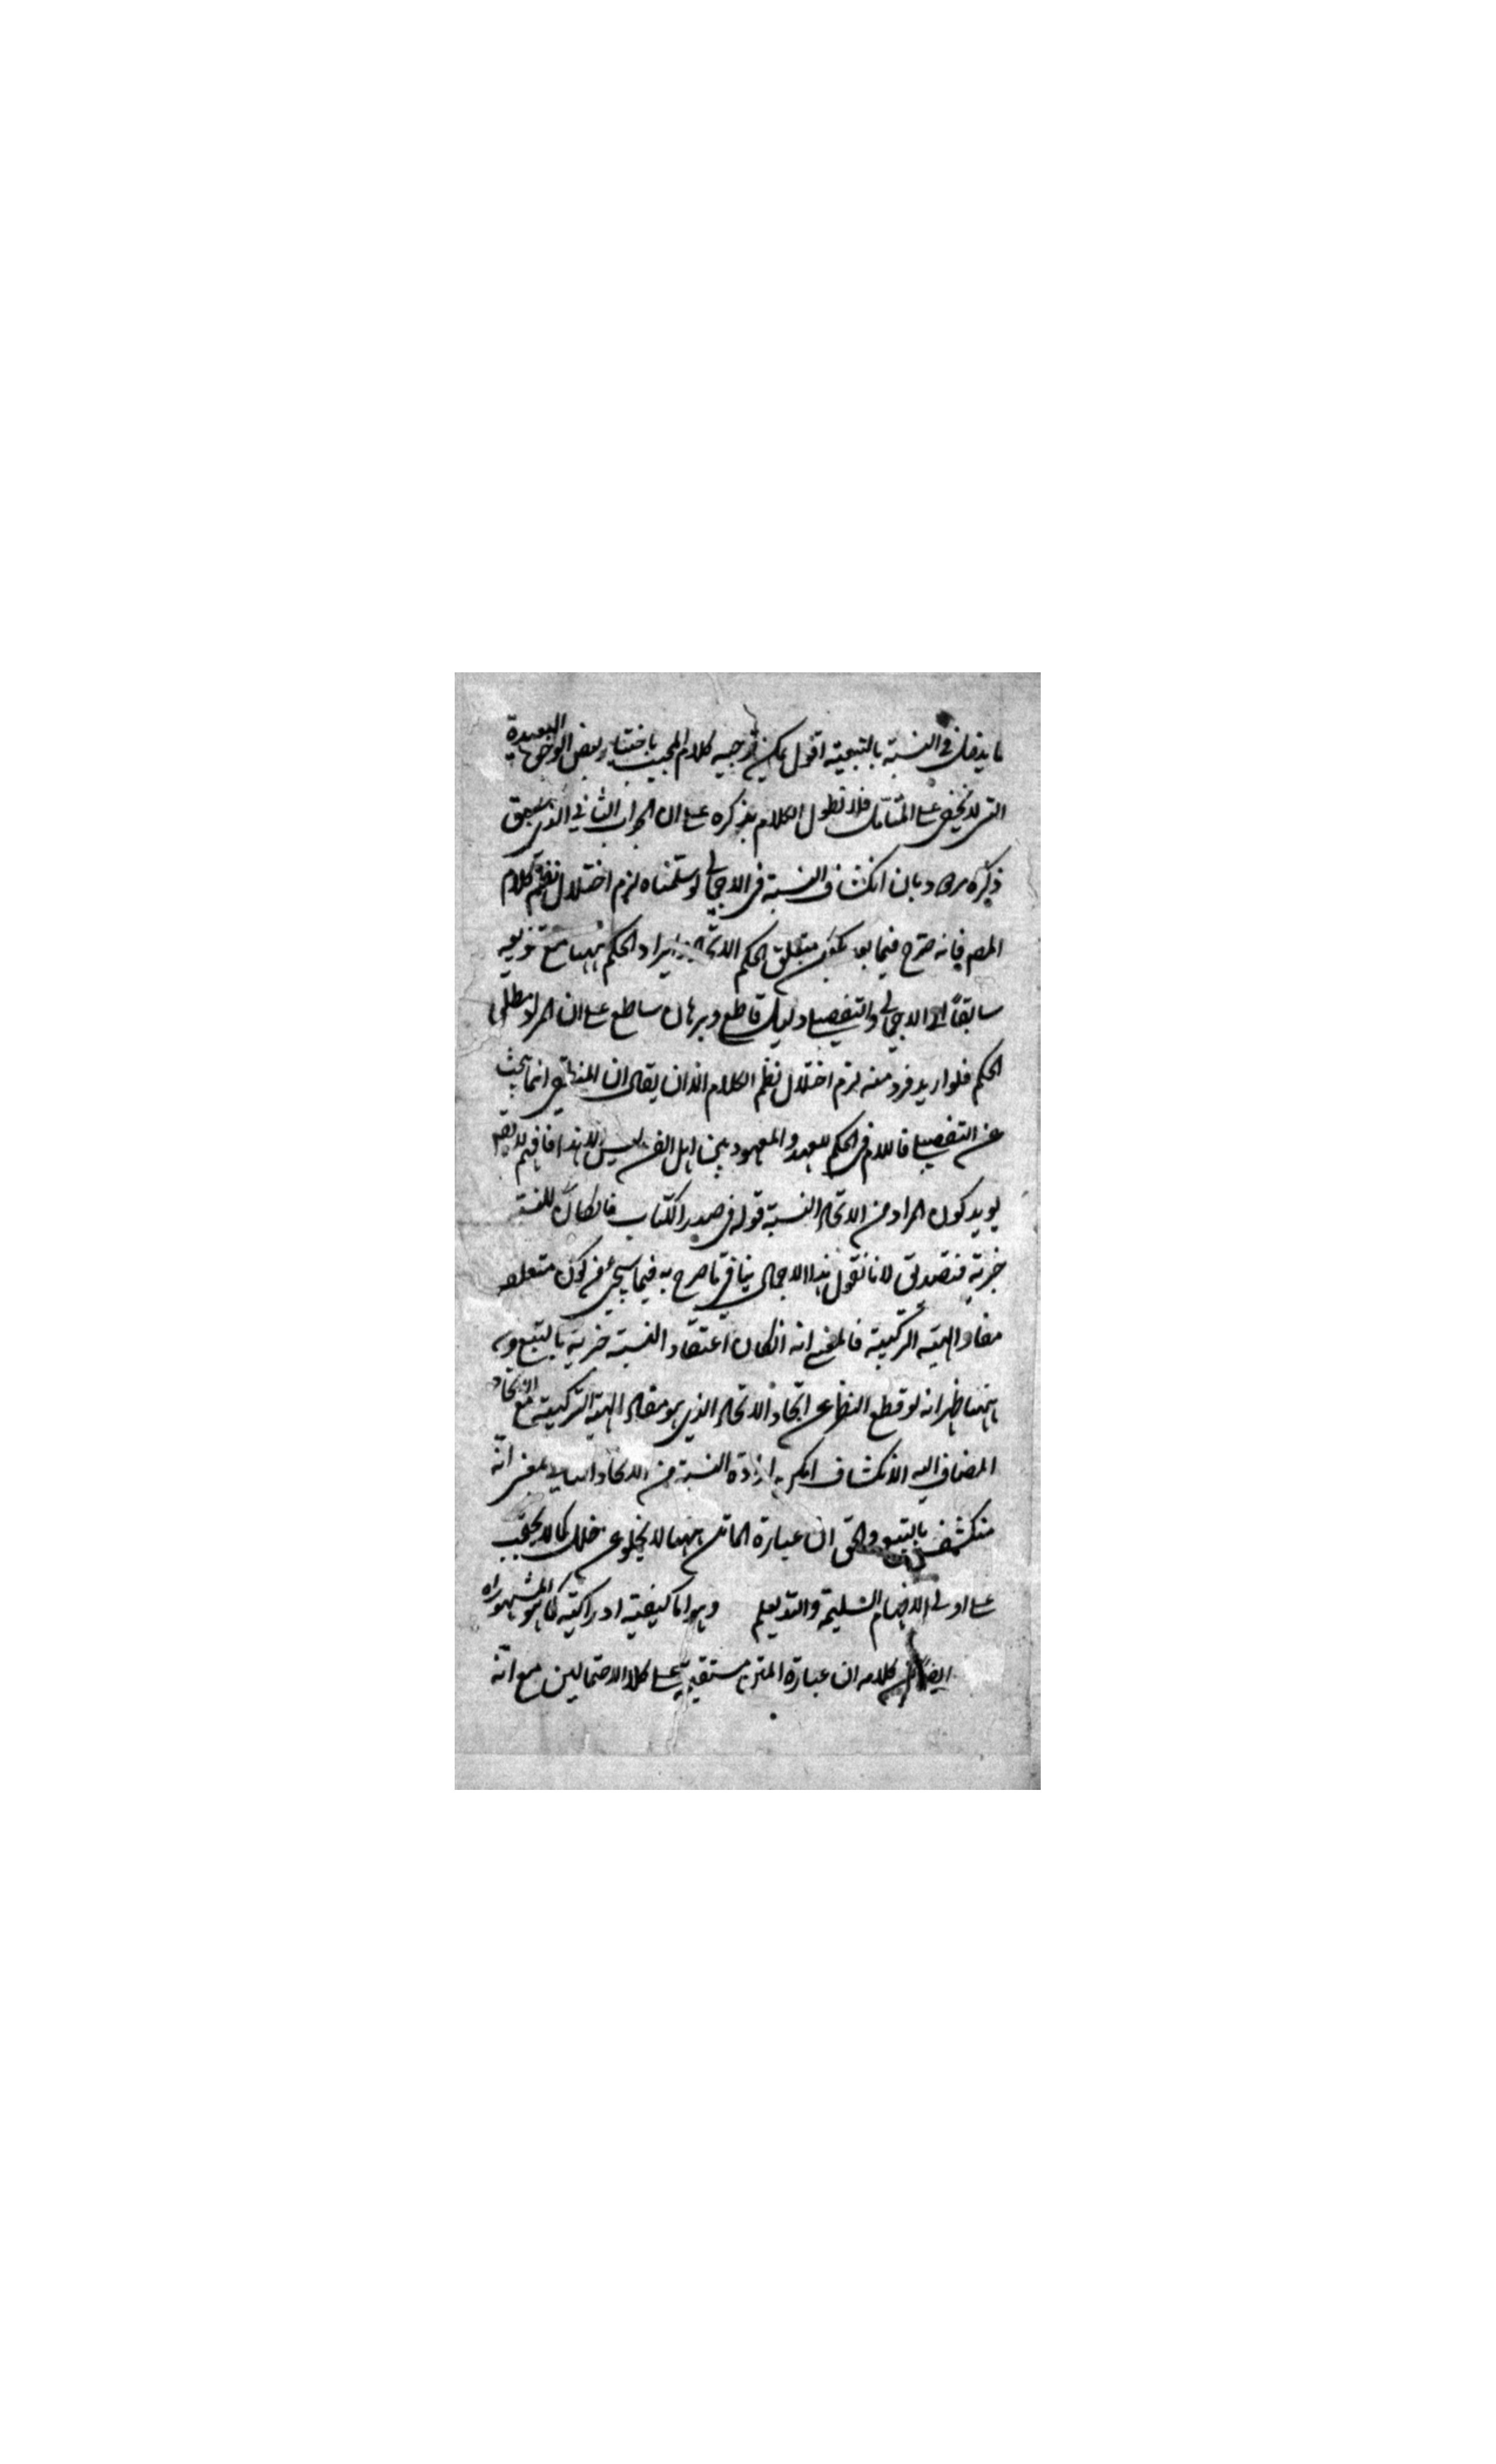 ما يدخل في النسبة بالتبعية اقول يمكن توجيه كلام المجيب باختيار بعض الوجوه البعيدة
التي لا يخفى على المتامل فلا نطول الكلام بذكره على ان الجواب الثاني الذي سبق
ذكره مردود بان انكشاف النسبة في الاجمالي لو سلمناه لزم اختلال نظم كلام
المصـ فانه صرح فيما بعد بكون متعلق الحكم الاتحاد ايراد الحكم ههنا مع تنويعه
سابقاً الى الاجمالي والتفصيلي دليل قاطع وبرهان ساطع على ان المراد مطلق
الحكم فلو اريد فرد منه لزم اختلال نظم الكلام الا ان يقال ان المنطقي انما يبحث
عن التفصيلي فاللام في الحكم للعهد والمعهود بين اهل الفن ليس الا هذا فافهم لا يقال
يؤيد كون المراد من الاتحاد النسبة قوله في صدر الكتاب فان كان للنسبة
خبرية فتصديق لانا نقول هذا الاجمال ينافي ما صرح به فيما سيجئ من كون متعلقه
مفاد الهيئة التركيبية فالمعنى انه ان كان اعتقاد النسبة خبرية بالتبع ومن
ههنا ظهر انه لو قطع النظر عن اتحاد الاتحاد الذي هو مفاد الهيئة التركيبية مع الاتحاد
المضاف اليه الانكشاف امكن ارادة النسبة من الاتحاد بمعنى انه
منكشف بالتبع والحق ان عبارة الماتن ههنا لا يخلو عن خلل كما لا يحتجب
على اولي الافهام السليمة والتدبعلم وهو اما كيفية ادراكية كما هو المشهور اه
ايضاً كلامه ان عبارة المتن مستقيمة على كلا الاحتمالين مع انه